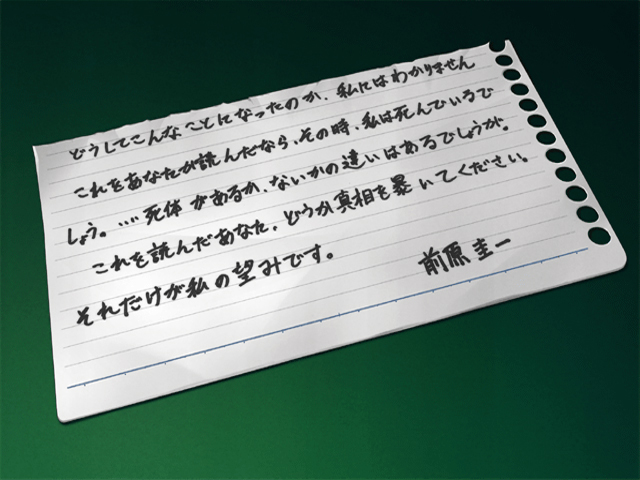 どうしてこんなことになったのか、私にはわかりません
これをあなたが読んだなら、その時、私は死んでいるで
しょう。……死体があるか、ないかの違いはあるでしょうが。
これを読んだあなた。どうか真相を暴いてください。
それだけが私の望みです。
前原圭一